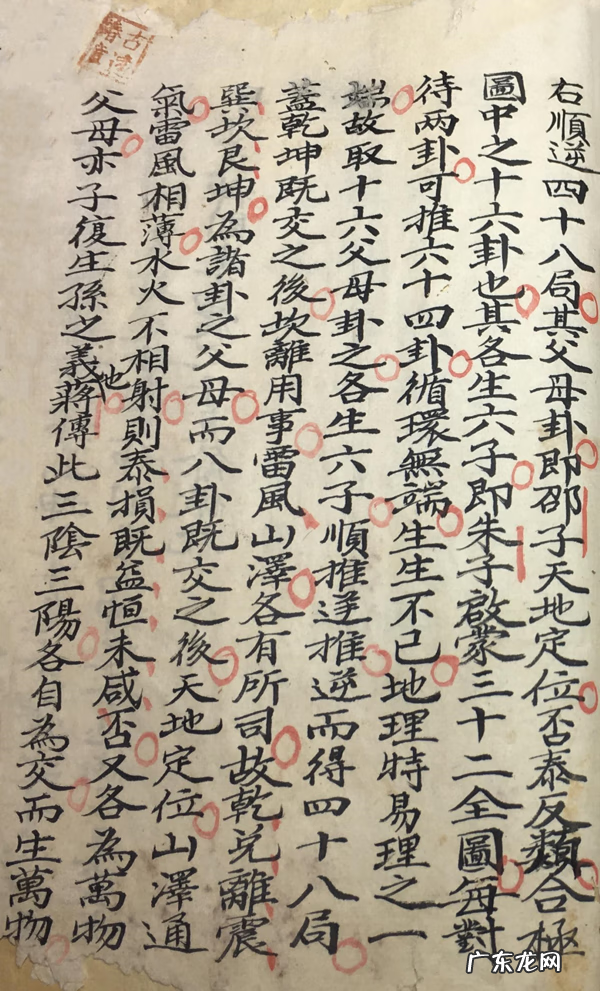 右順逆四十八局其父母卦即邵子天地定位否泰反類合極
圖中之十六卦也其各生六子即朱子啟蒙三十二全圖每對
待两卦可推六十四卦循環無端生生不已地理特易理之一
端故取十六父母卦之各生六子順推逆推逆而得四十八局
蓋乾坤既交之後坎離用事雷風山澤各有所司故乾兌離震
巽坎艮坤為諸卦之父母而八卦既交之後天地定位山澤通
氣雷風相薄水火不相射則泰損既益恒未咸否又各為萬物
父母亦子復生孫之義也蔣傳此三陰三陽各自為交而生萬物
广东龙网